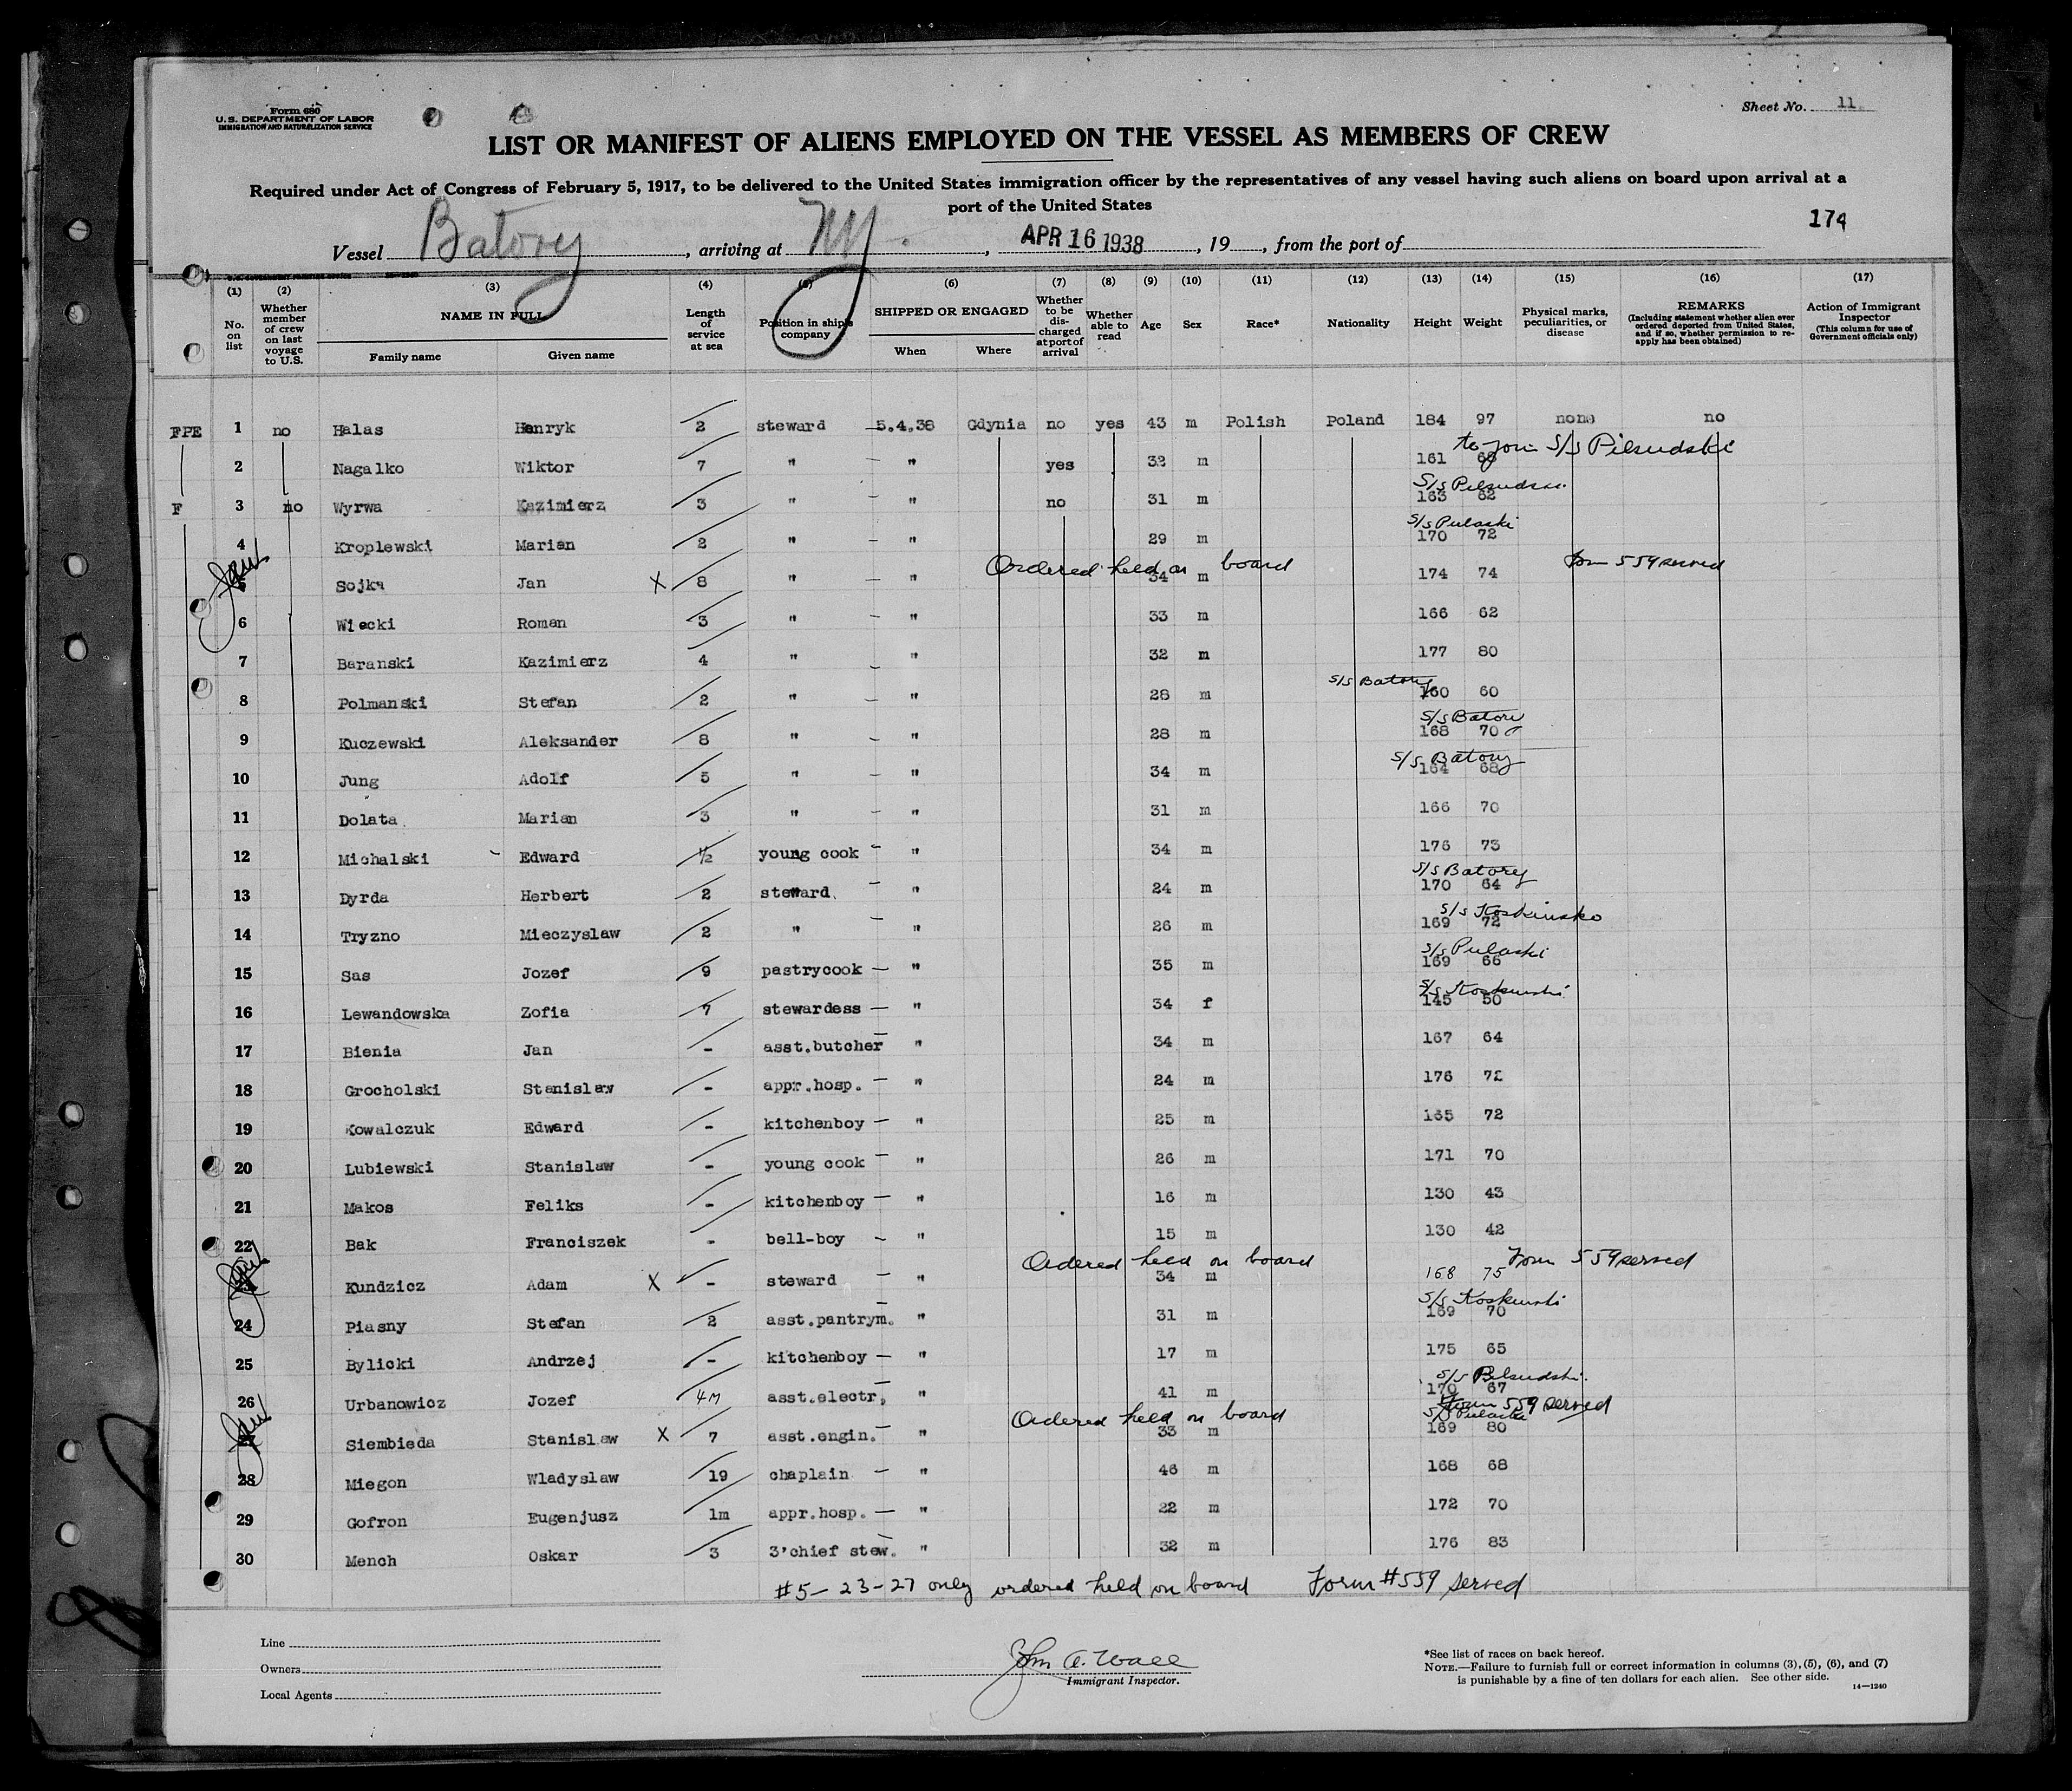 Form 680
U.S. DEPARTMENT OF LABOR
IMMIGRATION AND NATURALIZATION SERVICE
Sheet No. 11
LIST OR MANIFEST OF ALIENS EMPLOYED ON THE VESSEL AS MEMBERS OF CREW
Required under Act of Congress of February 5, 1917, to be delivered to the United States immigration officer by the representatives of any vessel having such aliens on board upon arrival at a
port of the United States
174
Vessel Batory, arriving at NY., APR 16 1938, 19, from the port of
(1) (2) (3) (4) (5) (6) (7) (8) (9) (10) (11) (12) (13) (14) (15) (16) (17)
No. on list Whether member of crew on last voyage to U.S. NAME IN FULL Family name Given name Length of service at sea Position in ship's company SHIPPED OR ENGAGED When Where Whether to be discharged at port of arrival Whether able to read Age Sex Race* Nationality Height Weight Physical marks, peculiarities, or disease REMARKS (Including statement whether alien ever ordered deported from United States, and if so, whether permission to re-apply has been obtained) Action of Immigrant Inspector (This column for use of Government officials only)
FPE 1 no Halas Henryk 2 steward 5.4.38 Gdynia no yes 43 m Polish Poland 184 97 none no
to join S/S Pilsudski
2 Nagalko Wiktor 7 " — " yes 32 m 161 68
S/S Pilsudski
F 3 no Wyrwa Kazimierz 3 " — " no 31 m 163 62
S/S Pulaski
4 Kroplewski Marian 2 " — " 29 m 170 72
Ordered held on board Form 559 served
5 Sojka Jan X 8 " — " 34 m 174 74
6 Wiecki Roman 3 " — " 33 m 166 62
7 Baranski Kazimierz 4 " — " 32 m 177 80
S/S Batory
8 Polmanski Stefan 2 " — " 28 m 160 60
S/S Batory
9 Kuczewski Aleksander 8 " — " 28 m 168 70
S/S Batory
10 Jung Adolf 5 " — " 34 m 164 68
11 Dolata Marian 3 " — " 31 m 166 70
12 Michalski Edward ½ young cook — " 34 m 176 73
S/S Batory
13 Dyrda Herbert 2 steward — " 24 m 170 64
14 Tryzno Mieczyslaw 2 " — " 26 m 169 72
S/S Pulaski
15 Sas Jozef 9 pastrycook — " 35 m 169 66
16 Lewandowska Zofia 7 stewardess — " 34 f 145 50
17 Bienia Jan - asst.butcher — " 34 m 167 64
18 Grocholski Stanislaw - appr.hosp. — " 24 m 176 72
19 Kowalczuk Edward - kitchenboy — " 25 m 165 72
20 Lubiewski Stanislaw - young cook — " 26 m 171 70
21 Makos Feliks - kitchenboy — " 16 m 130 43
22 Bak Franciszek - bell-boy — " 15 m 130 42
Ordered held on board Form 559 served
Kundzicz Adam X - steward — " 34 m 168 75
24 Piasny Stefan 2 asst.pantrym. — " 31 m 169 70
25 Bylicki Andrzej - kitchenboy — " 17 m 175 65
S/S Pilsudski
26 Urbanowicz Jozef 4M asst.electr, — " 41 m 170 67
Ordered held on board Form 559 served
S/S Pulaski
27 Siembieda Stanislaw X 7 asst.engin. — " 33 m 169 80
28 Miegon Wladyslaw 19 chaplain — " 46 m 168 68
29 Gofron Eugenjusz 1m appr.hosp. — " 22 m 172 70
30 Mench Oskar 3 3'chief stew. — " 32 m 176 83
#5-23-27 only ordered held on board Form #559 served
Line
Owners
Local Agents
John A. Wall
Immigrant Inspector.
*See list of races on back hereof.
NOTE.—Failure to furnish full or correct information in columns (3), (5), (6), and (7)
is punishable by a fine of ten dollars for each alien. See other side.
14—1240